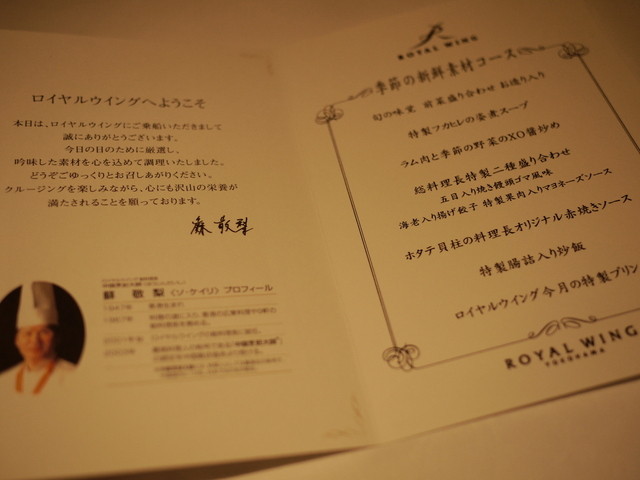 ロイヤルウイングへようこそ
本日は、ロイヤルウイングにご乗船いただきまして
誠にありがとうございます。
今日の日のために厳選し、
吟味した素材を心を込めて調理いたしました。
どうぞごゆっくりとお召しあがりください。
クルージングを楽しみながら、心にも沢山の栄養が
満たされることを願っております。
蘇 敬 梨 〈ソ・ケイリ〉 プロフィール
ROYAL WING
季節の新鮮素材コース
旬の味覚 前菜盛り合わせ お造り入り
特製フカヒレの姿煮スープ
ラム肉と季節の野菜のXO醬炒め
総料理長特製二種盛り合わせ
五目入り焼き饅頭ゴマ風味
海老入り揚げ餃子 特製果肉入りマヨネーズソース
ホタテ貝柱の料理長オリジナル赤焼きソース
特製腸詰入り炒飯
ロイヤルウイング今月の特製プリン
ROYAL WING
YOKOHAMA